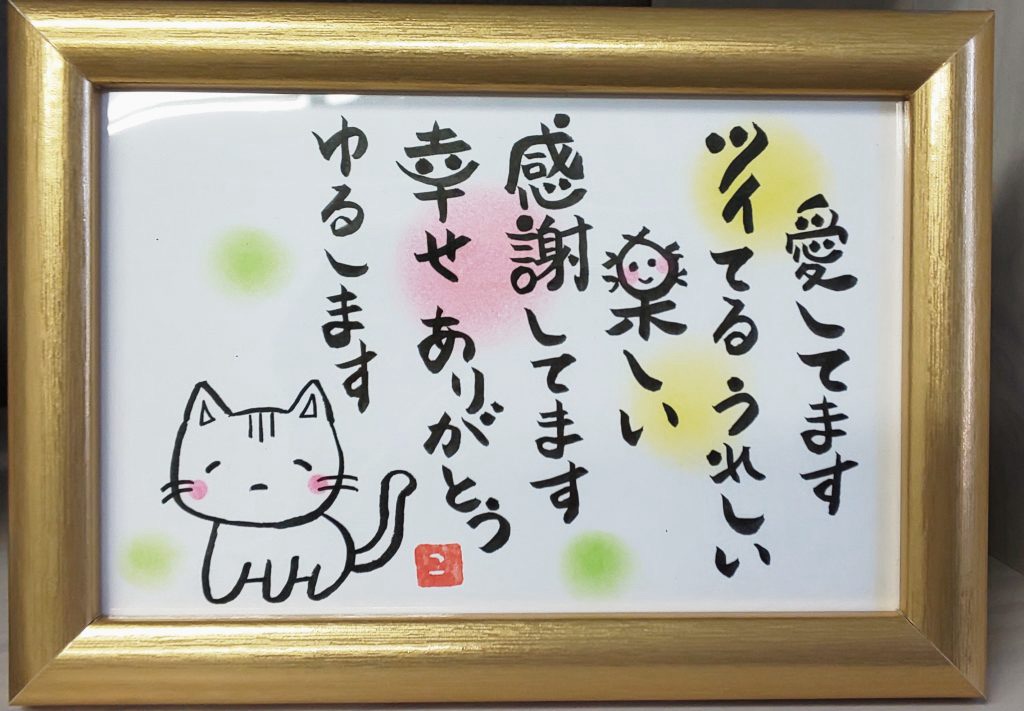 愛してます
ツイてる うれしい
楽しい
感謝してます
幸せ ありがとう
ゆるします
こ